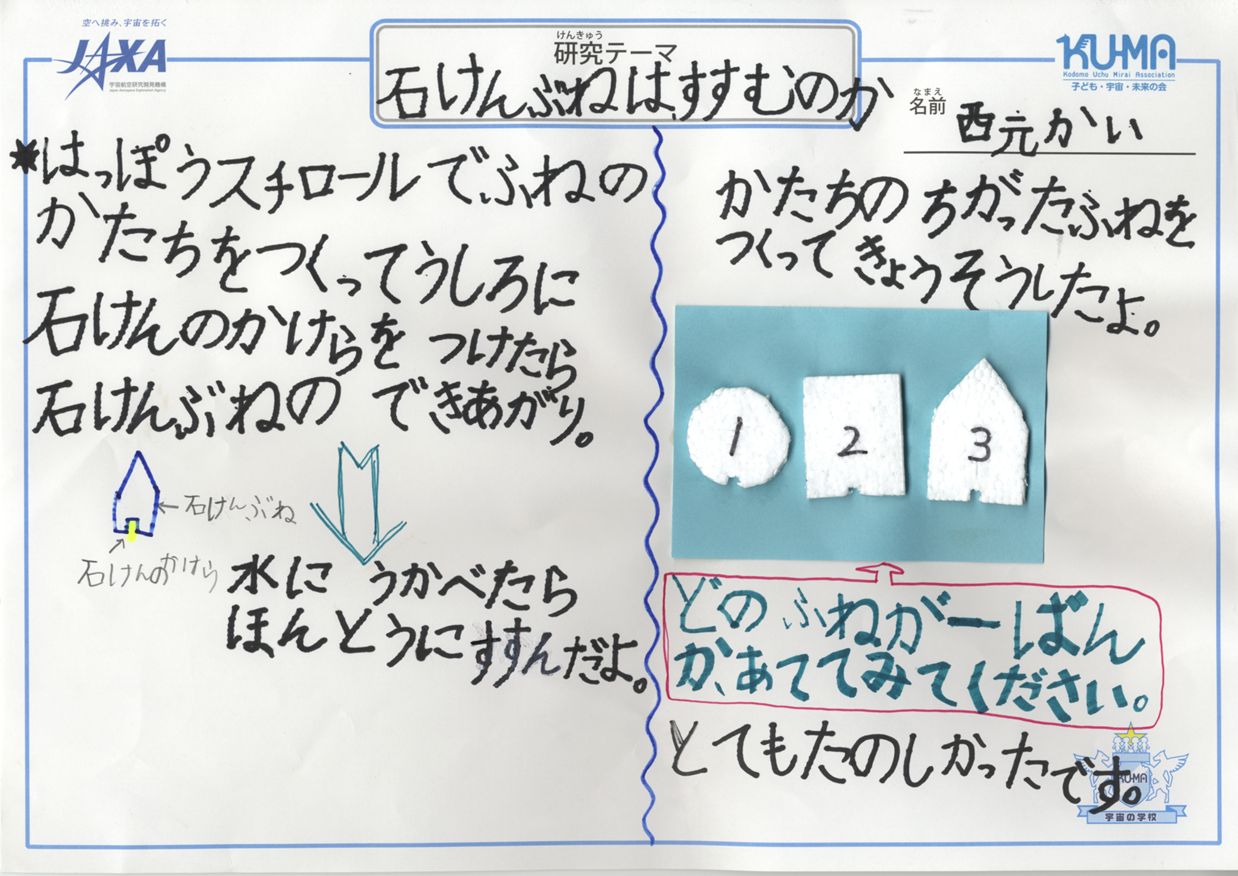 空へ挑み、宇宙を拓く
JAXA
宇宙航空研究開発機構
Japan Aerospace Exploration Agency
けんきゅう
研究テーマ
石けんぶねは、すすむのか
KU-MA
Kodomo Uchu Mirai Association
子ども・宇宙・未来の会
なまえ
名前
西元かい
*はっぽうスチロールでふねの
かたちをつくってうしろに
石けんのかけらをつけたら
石けんぶねのできあがり。
石けんぶね
石けんのかけら
水にうかべたら
ほんとうにすすんだよ。
かたちのちがったふねを
つくってきょうそうしたよ。
1
2
3
どのふねが一ばん
か、あててみてください。
とてもたのしかったです。
KU-MA
宇宙の学校